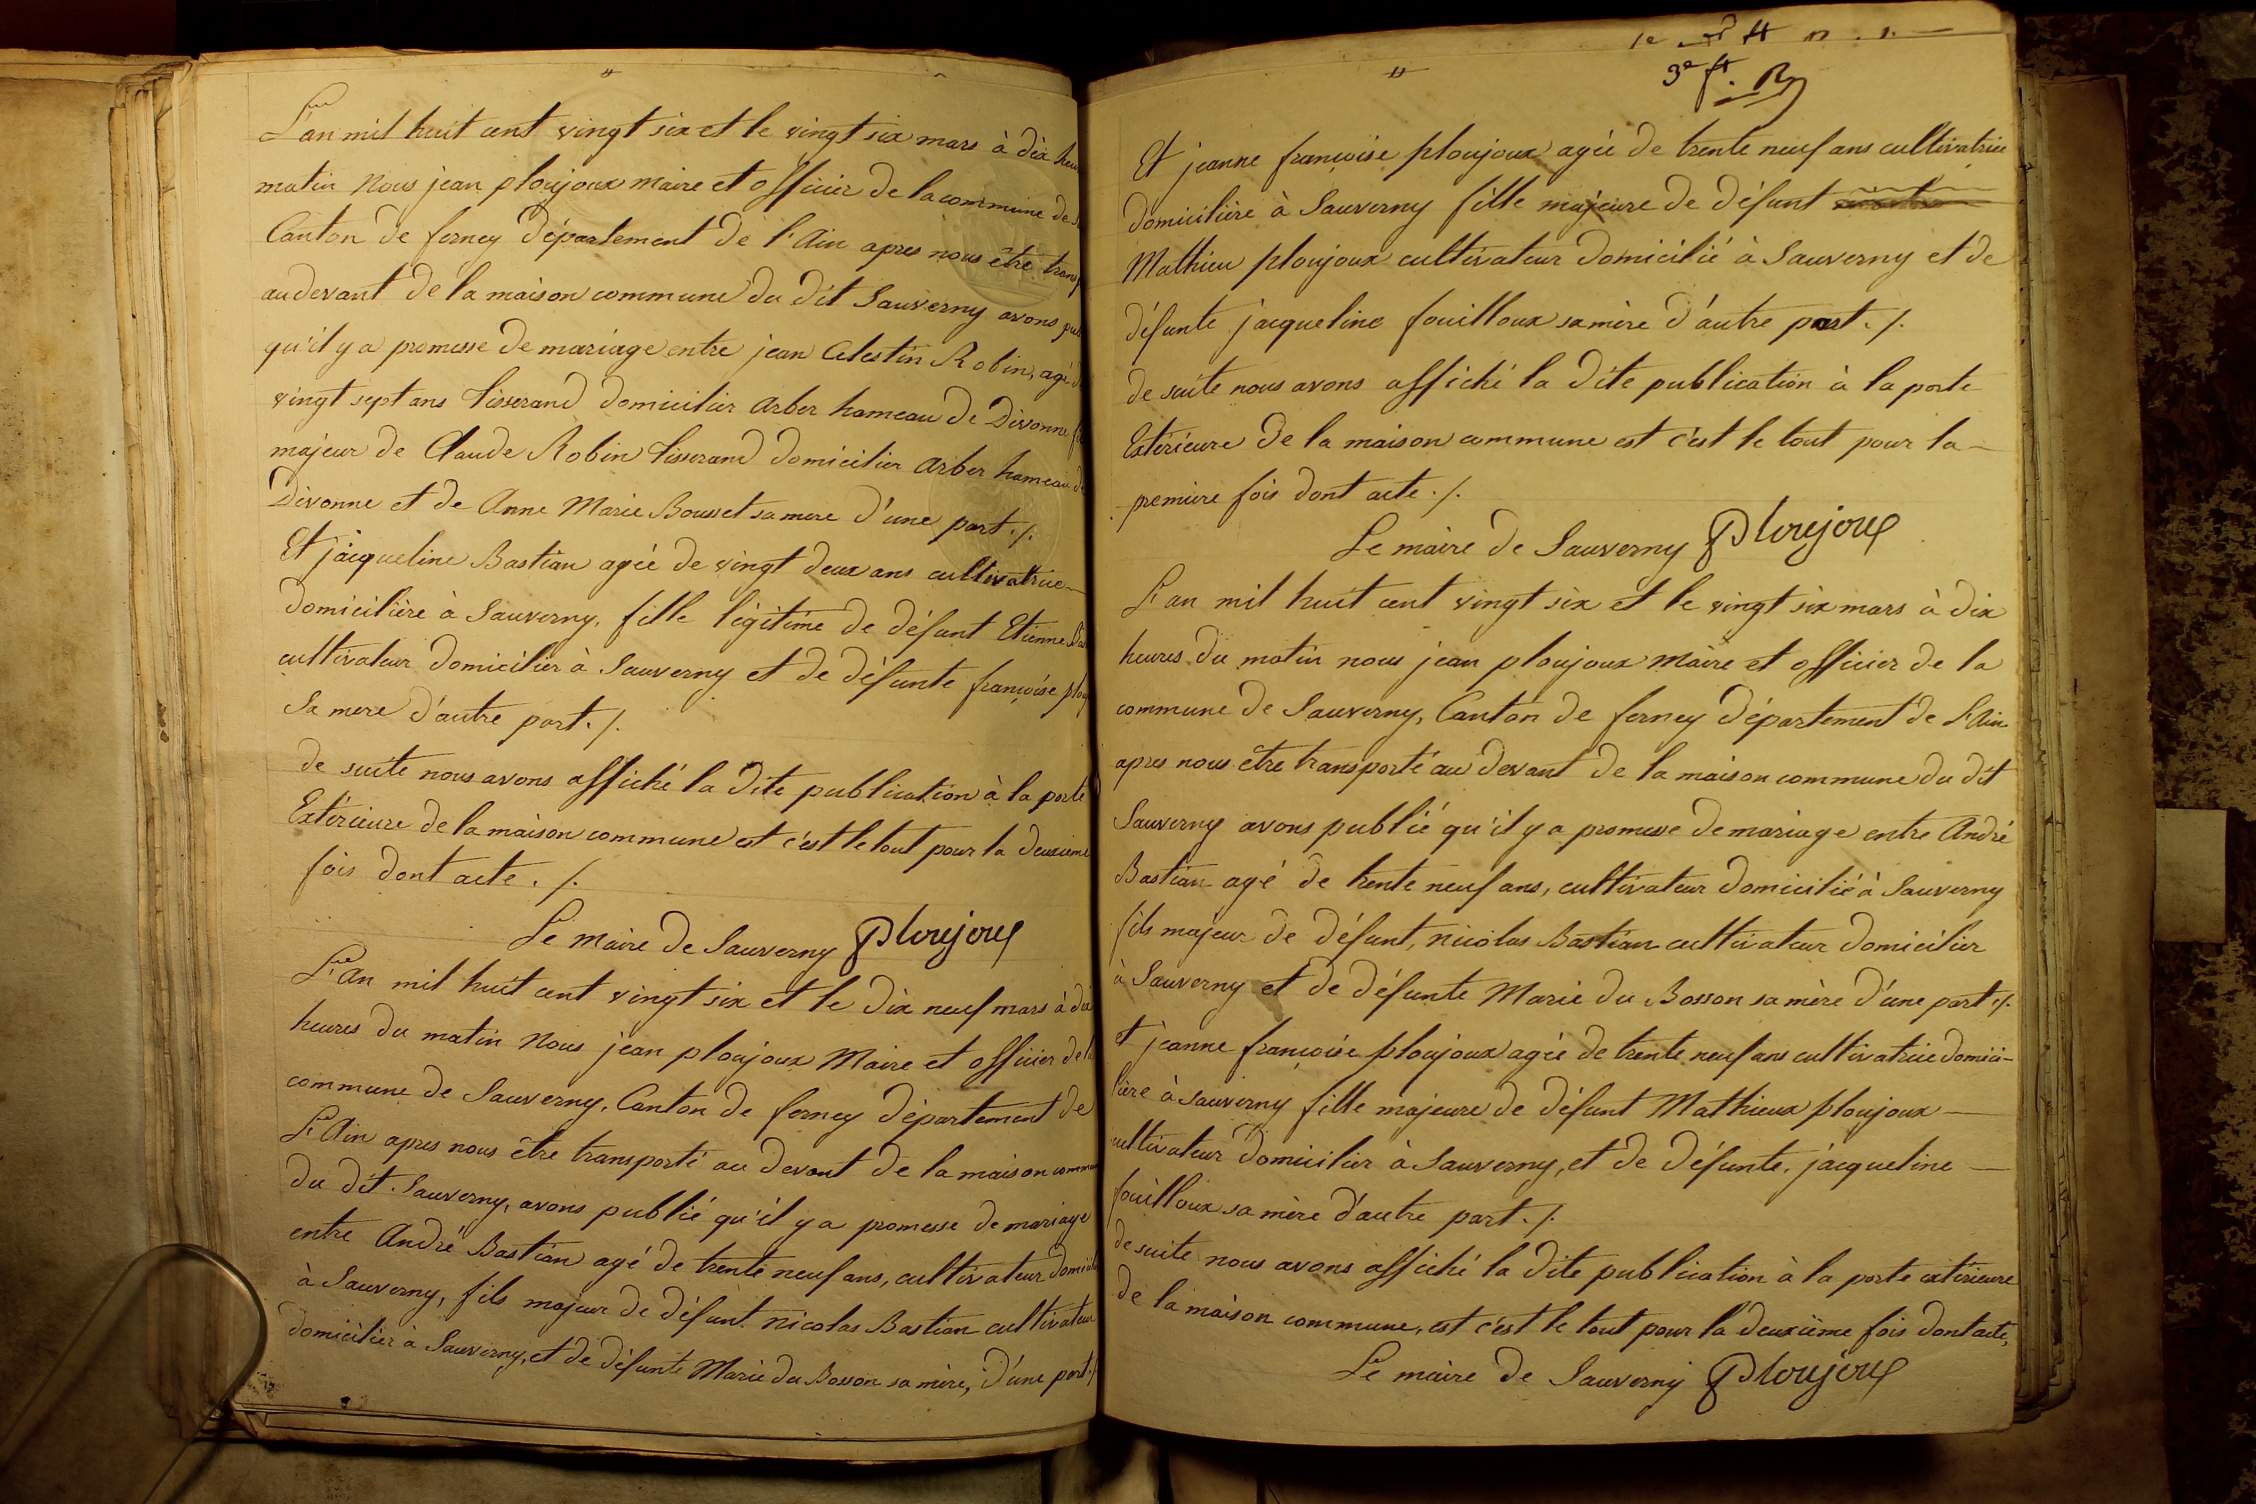 L'an mil huit cent vingt six et le vingt six mars à dix heu
matin Nous jean ploujoux maire et officier de la commune de
Canton de ferney département de l'Ain apres nous être transp
au devant de la maison commune du dit Sauverny avons pub
qu'il y a promesse de mariage entre jean Celestin Robin, agé d
vingt sept ans tisserand domicilier arber hameau de Divonne fi
majeur de Claude Robin tisserand domicilier arber hameau de
Divonne et de Anne Marie Bousset sa mere d'une part ./.
Et jacqueline Bastian agée de vingt deux ans cultivatrice
domicilière à Sauverny, fille légitime de défunt Etienne Bas
cultivateur domicilier à Sauverny et de défunte françoise plou
Sa mere d'autre part ./.
de suite nous avons affiché la dite publication à la porte
Extérieure de la maison commune est c'est le tout pour la deuxieme
fois dont acte ./.
Le Maire de Sauverny Ploujoux
L'an mil huit cent vingt six et le dix neuf mars à dix
heures du matin Nous jean ploujoux Maire et officier de la
commune de Sauverny, Canton de ferney département de
L'Ain apres nous être transporté au devant de la maison commun
du dit Sauverny, avons publié qu'il y a promesse de mariage
entre André Bastian agé de trente neuf ans, cultivateur domicili
à Sauverny, fils majeur de défunt Nicolas Bastian cultivateur
domicilier à Sauverny, et de défunte Marie du Bosson sa mère, d'une part ./
3e ft.
Et jeanne françoise ploujoux agée de trente neuf ans cultivatrice
domicilière à Sauverny fille majeure de défunt
Mathieu ploujoux cultivateur domicilié à Sauverny et de
défunte jacqueline fouilloux sa mère d'autre part ./.
de suite nous avons affiché la dite publication à la porte
Extérieure de la maison commune est c'est le tout pour la
première fois dont acte ./.
Le maire de Sauverny Ploujoux
L'an mil huit cent vingt six et le vingt six mars à dix
heures du matin nous jean ploujoux Maire et officier de la
commune de Sauverny, Canton de ferney département de L'Ain
apres nous être transporté au devant de la maison commune du dit
Sauverny avons publié qu'il y a promesse de mariage entre André
Bastian agé de trente neuf ans, cultivateur domicilié à Sauverny
fils majeur de défunt, nicolas Bastian cultivateur domicilier
à Sauverny et de défunte Marie du Bosson sa mère d'une part ./.
et jeanne françoise ploujoux agée de trente neuf ans cultivatrice domici-
lière à Sauverny fille majeure de défunt Mathieux ploujoux
cultivateur domicilier à Sauverny, et de défunte, jacqueline
fouilloux sa mère d'autre part ./.
de suite nous avons affiché la dite publication à la porte extérieure
de la maison commune, est c'est le tout pour la deuxième fois dont acte,
Le maire de Sauverny Ploujoux